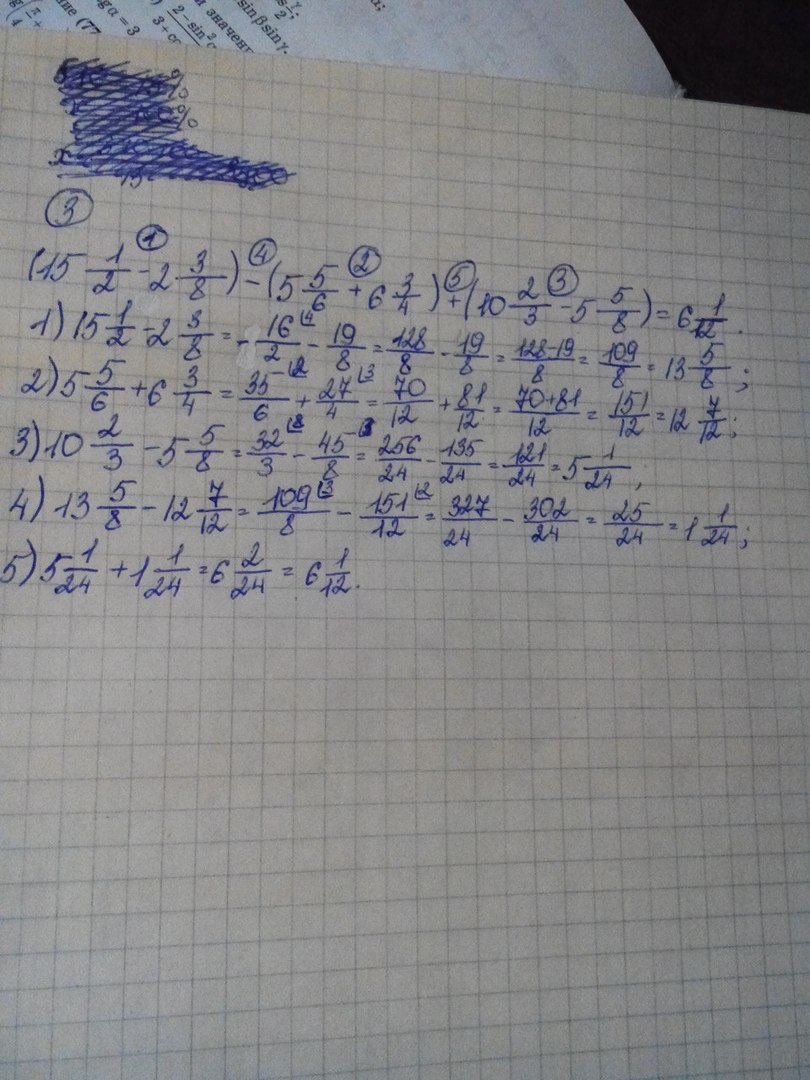 sinβsinγ.
3
(15 1/2 - 2 3/8) - (5 5/6 + 6 3/4) + (10 2/3 - 5 5/8) = 6 1/12.
1) 15 1/2 - 2 3/8 = - 16/2 - 19/8 = 128/8 - 19/8 = 128-19/8 = 109/8 = 13 5/8;
2) 5 5/6 + 6 3/4 = 35/6 + 27/4 = 70/12 + 81/12 = 70+81/12 = 151/12 = 12 7/12;
3) 10 2/3 - 5 5/8 = 32/3 - 45/8 = 256/24 - 135/24 = 121/24 = 5 1/24;
4) 13 5/8 - 12 7/12 = 109/8 - 151/12 = 327/24 - 302/24 = 25/24 = 1 1/24;
5) 5 1/24 + 1 1/24 = 6 2/24 = 6 1/12.